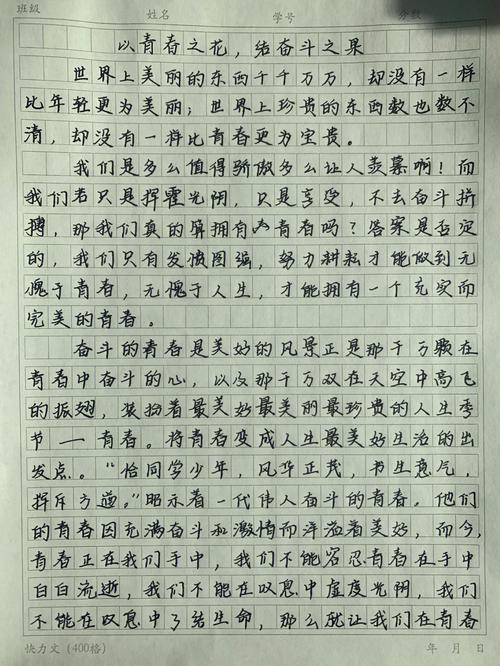 班级 姓名 学号 分数
以青春之花，结奋斗之果
世界上美丽的东西千千万万，却没有一样
比年轻更为美丽；世界上珍贵的东西数也数不
清，却没有一样比青春更为宝贵。
我们是多么值得骄傲多么让人羡慕啊！而
我们若只是挥霍光阴，只是享受，不去奋斗拼
搏，那我们真的算拥有青春吗？答案是否定
的，我们只有发愤图强，努力耕耘才能做到无
愧于青春，无愧于人生，才能拥有一个充实而
完美的青春。
奋斗的青春是美好的风景正是那千万颗在
青春中奋斗的心，以及那千万双在天空中高飞
的振翅，装扮着最美好最美丽最珍贵的人生季
节——青春。将青春变成人生最美好生活的出
发点。“恰同学少年，风华正茂，书生意气，
挥斥方遒。”昭示着一代伟人奋斗的青春。他们
的青春因充满奋斗和激情而洋溢着美好，而今，
青春正在我们手中，我们不能容忍青春在手中
白白流逝，我们不能在叹息中虚度光阴，我们
不能在叹息中了结生命，那么就让我们在青春
快力文（400格） 年 月 日